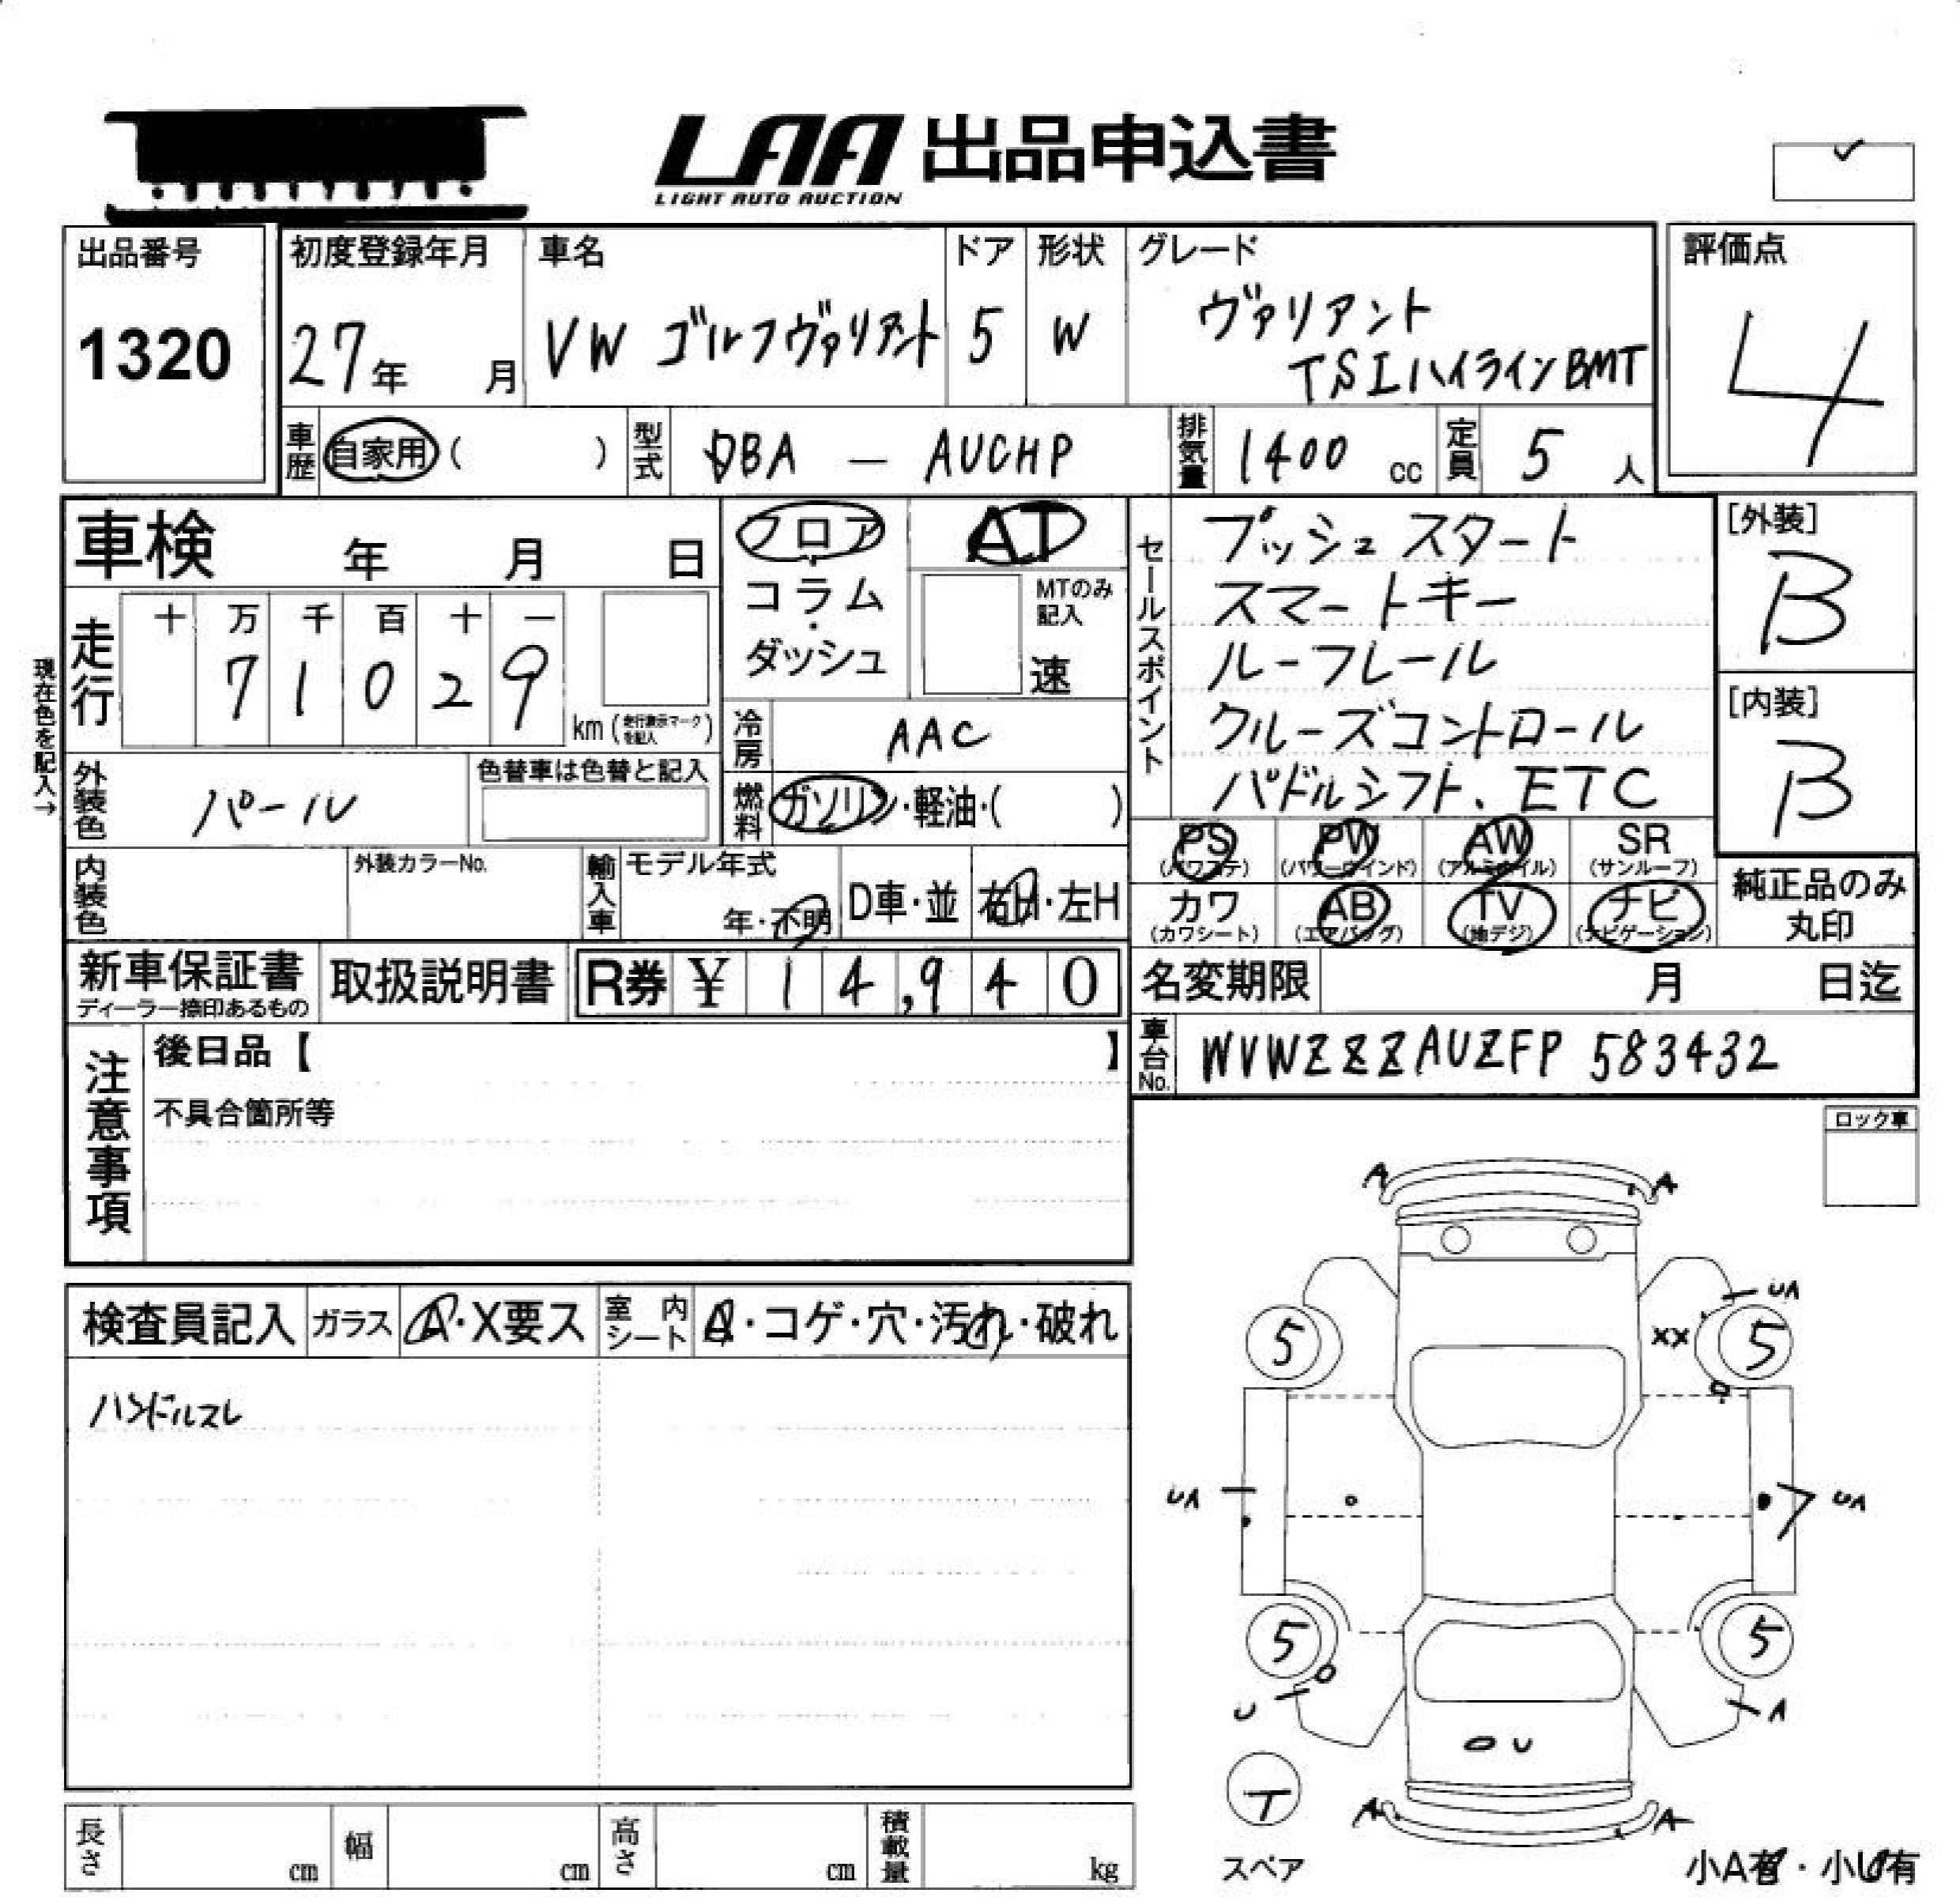 LAA 出品申込書
LIGHT AUTO AUCTION
出品番号
1320
初度登録年月
27年 月
車名
VW ゴルフヴァリアント
ドア
5
形状
W
グレード
ヴァリアント
TSIハイラインBMT
評価点
4
車歴 自家用 ( )
型式 DBA — AUCHP
排気量 1400 cc
定員 5 人
車検 年 月 日
フロア・コラム・ダッシュ
AT
MTのみ
記入
速
セールスポイント
プッシュスタート
スマートキー
ルーフレール
クルーズコントロール
パドルシフト、ETC
[外装]
B
[内装]
B
現在色を記入→
走行
十 万 千 百 十 一
7 1 0 2 9
km (走行表示マークを記入)
冷房 AAC
外装色 パール
色替車は色替と記入
燃料 ガソリン・軽油・( )
内装色
外装カラーNo.
輸入車
モデル年式
年・不明
D車・並
右H・左H
PS (パワステ)
PW (パワーウインド)
AW (アルミホイル)
SR (サンルーフ)
カワ (カワシート)
AB (エアバッグ)
TV (地デジ)
ナビ (ナビゲーション)
純正品のみ
丸印
新車保証書
ディーラー捺印あるもの
取扱説明書
R券 ¥ 14,940
名変期限 月 日迄
車台No. WVWZZZAUZFP583432
注意事項
後日品【 】
不具合箇所等
ロック車
検査員記入
ガラス A・X要ス
室内シート A・コゲ・穴・汚れ・破れ
ハンドルスレ
A A
UA
5 XX 5
UA UA
5 5
U A
U
T
スペア
A A
小A有・小U有
長さ cm
幅 cm
高さ cm
積載量 kg